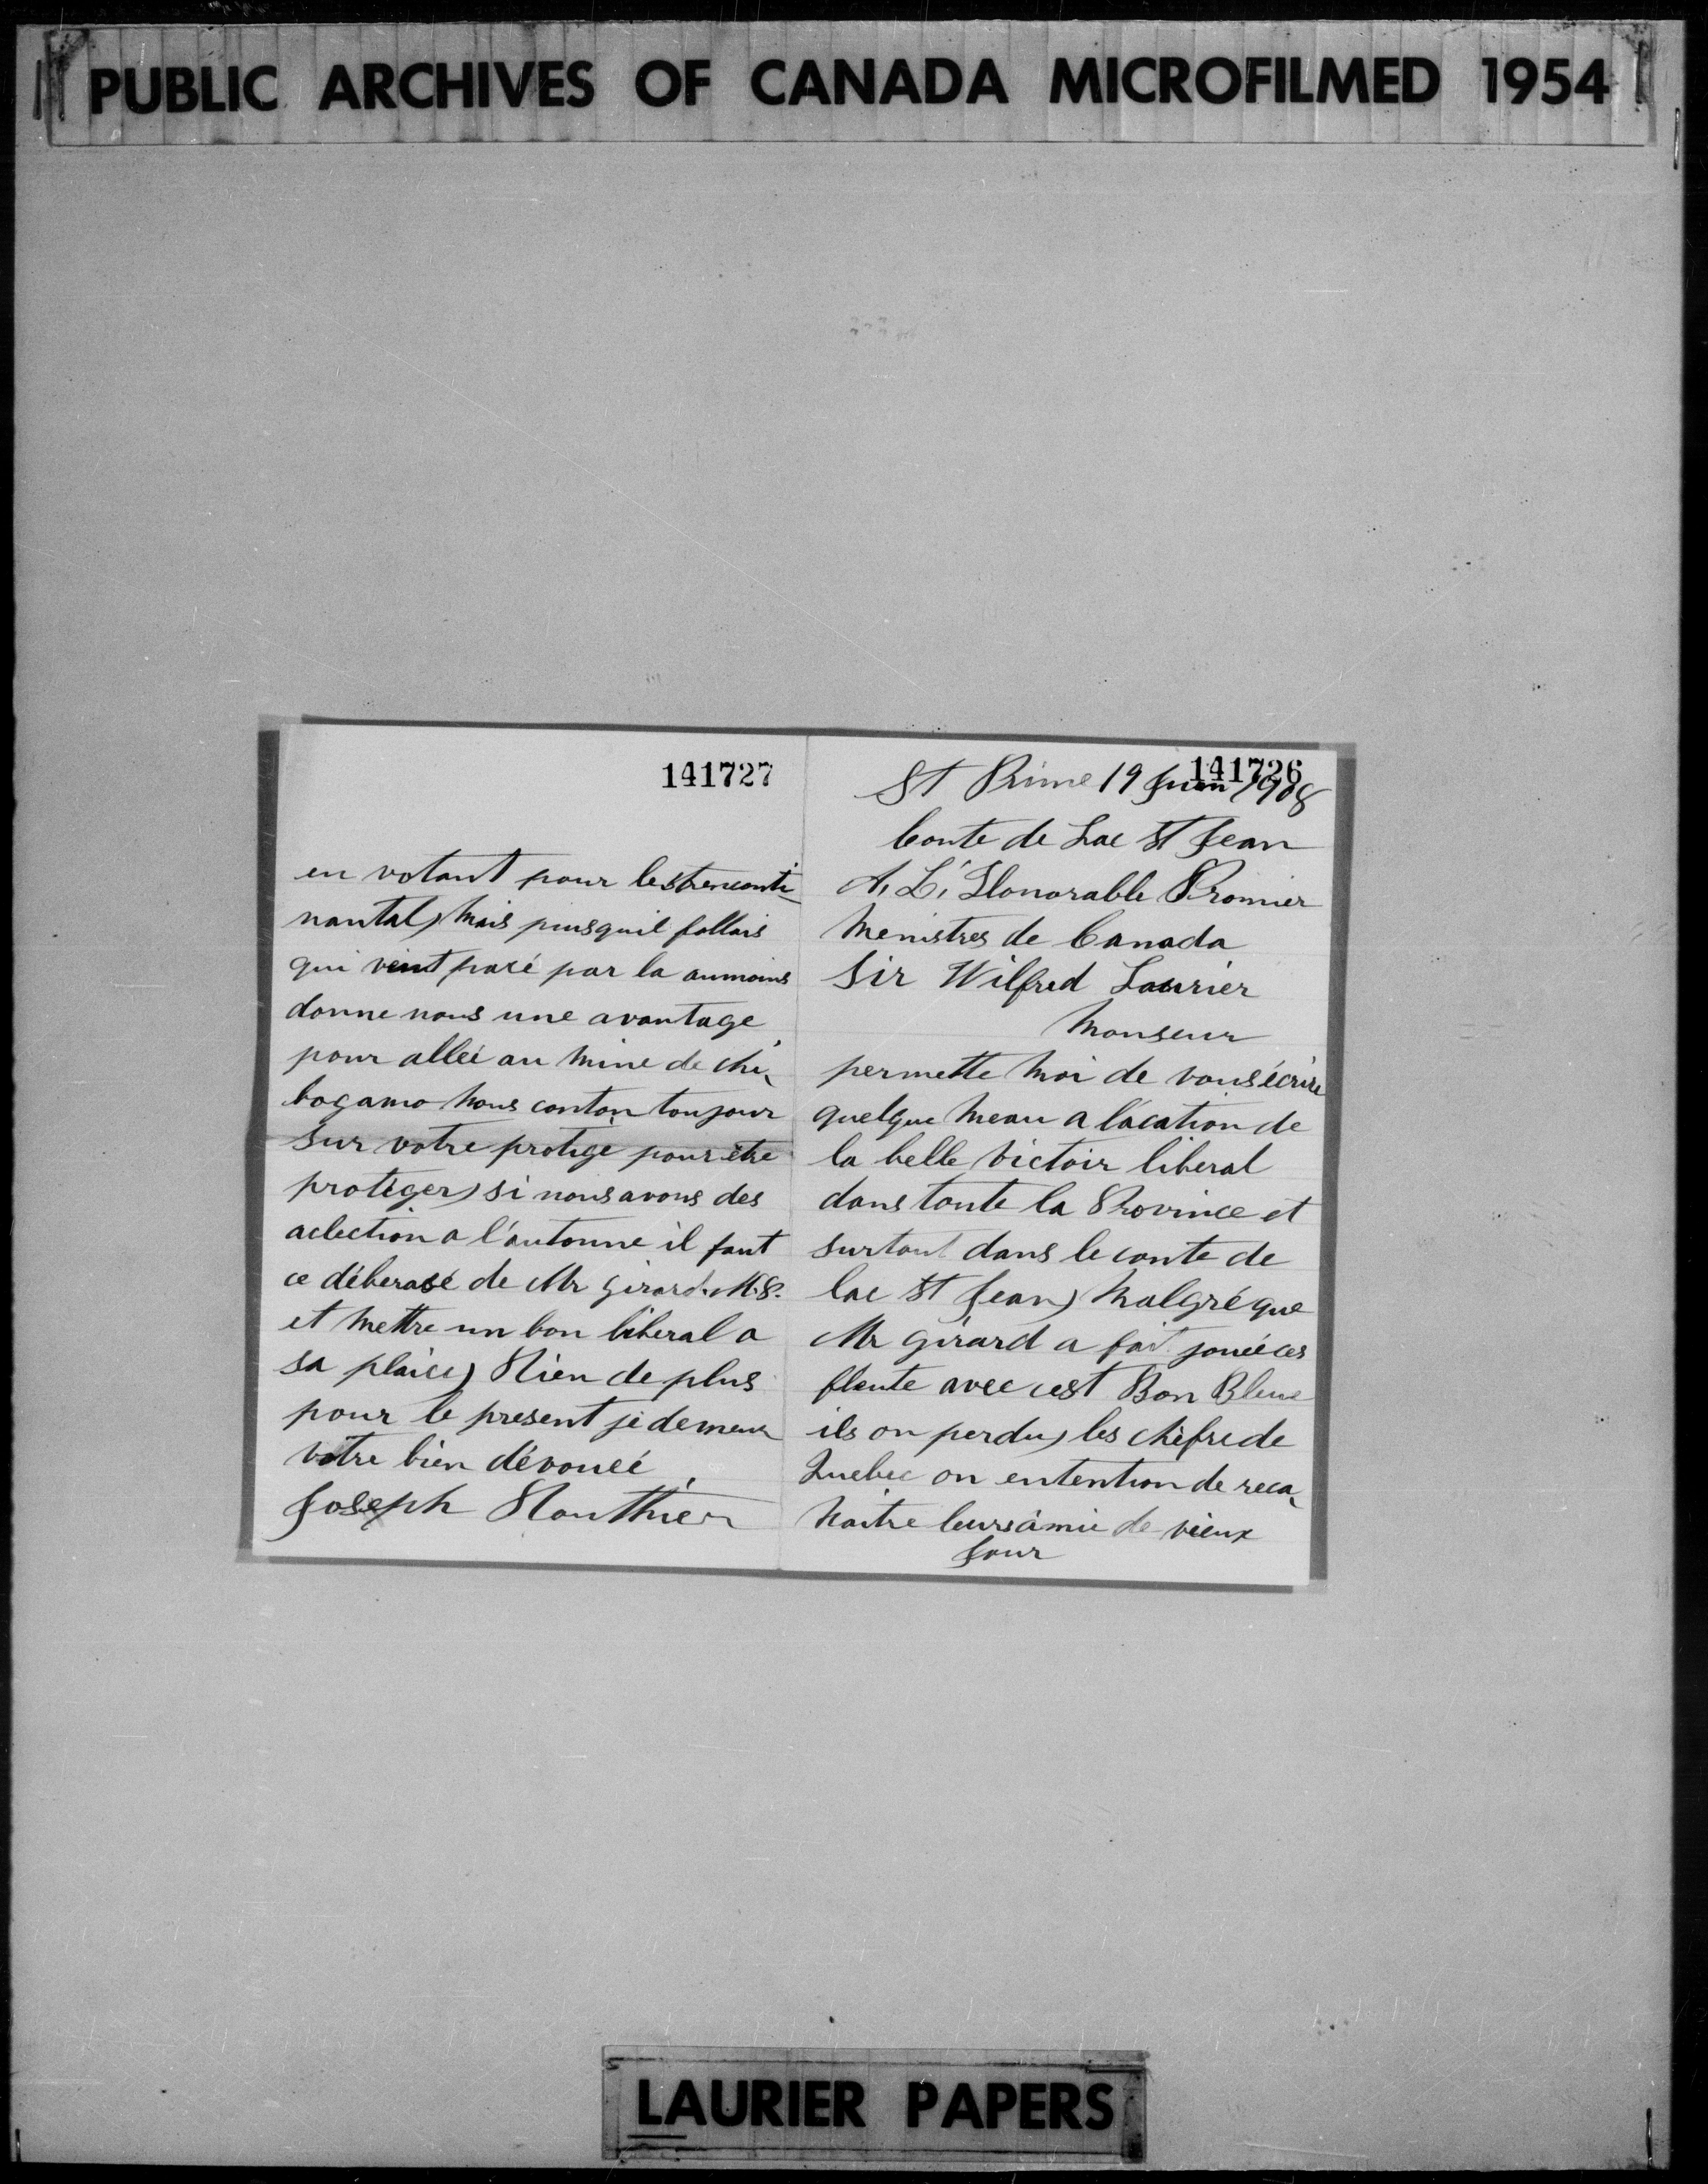 PUBLIC ARCHIVES OF CANADA MICROFILMED 1954
141726
St Prime 19 Juin 1908
Conte de Lac St Jean
A, L', Honorable Promier
Menistres de Canada
Sir Wilfred Laurier
Monseur
permette moi de vous écrire
quelque meau a l'acation de
la belle victoir liberal
dans toute la Province et
surtout dans le conte de
lac St Jean) Malgré que
Mr Girard a fait jouéé ces
fleute avec cest Bon Bleux
ils on perdu) les chèfre de
Quebec on entention de reca,
naitre leurs àmie de vieux
Jour
141727
en votant pour les trenconti-
nantal) Mais puisquil fallais
qui veint pasé par la aumoins
donne nous une avantage
pour alleé au mine de chi,
bogamo nous conton toujour
sur votre protige pour être
protèger) si nous avons des
aclection a l'autonne il faut
ce déberasé de Mr Girard. M.P.
et mettre un bon liberal a
sa plaice) Rien de plus
pour le present je demeur
votre bien dévoueé
Joseph
LAURIER PAPERS